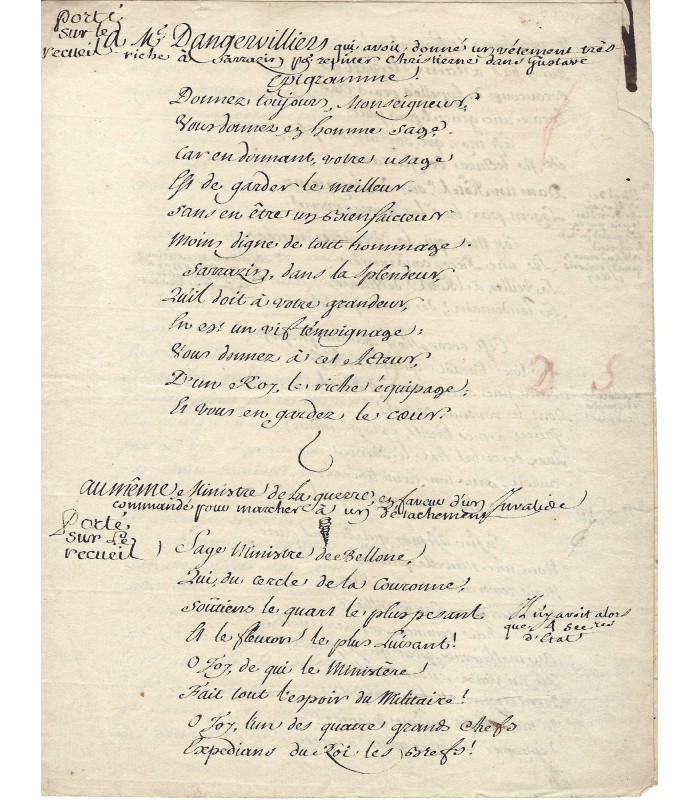 Porté
sur le
recueil
à Mr. Dangervilliers qui avoit donné un vétement très
riche à Sarrazin pr. représenter Christierne dans Gustave
Epigramme.
Donnez toujours, Monseigneur,
Vous donnez en homme sage.
Car en donnant, votre usage
Est de garder le meilleur
Sans en être un Bienfaicteur
Moins digne de tout hommage.
Sarrazin, dans la splendeur
Qu'il doit à votre grandeur,
En est un vif témoignage:
Vous donnez à cet Acteur,
D'un Roy, le riche équipage,
Et vous en gardez le cœur.
au même Ministre de la guerre, en faveur d'un Invalide
commandé pour marcher à un Détachement
Porté
sur le
recueil
Sage Ministre de Bellone,
Qui, du cercle de la Couronne,
Soutiens le quart le plus pesant
Et le fleuron le plus Luisant!
Il n'y avoit alors
que 4 Secres
d'Etat
O Toy, de qui le Ministère
Fait tout l'espoir du Militaire!
O Toy, l'un des quatre grands chefs
Expedians du Roi les Brefs!